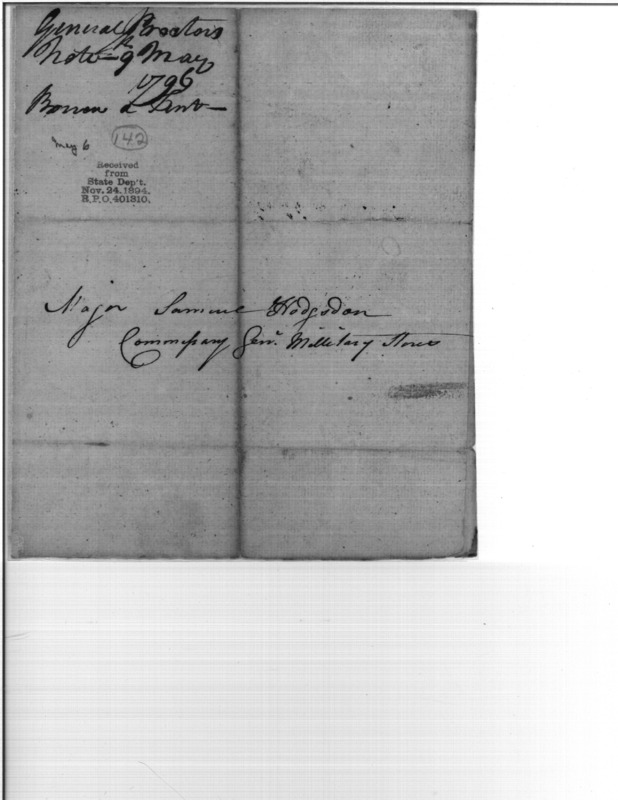 General Proctors
Note 9th May
1796
a Tent
May 6
142
Received
from
State Dep't.
Nov. 24, 1894.
R.P.O. 401310.
Major Samuel Hodgsdon
Commissary Genl. Millitary Stores